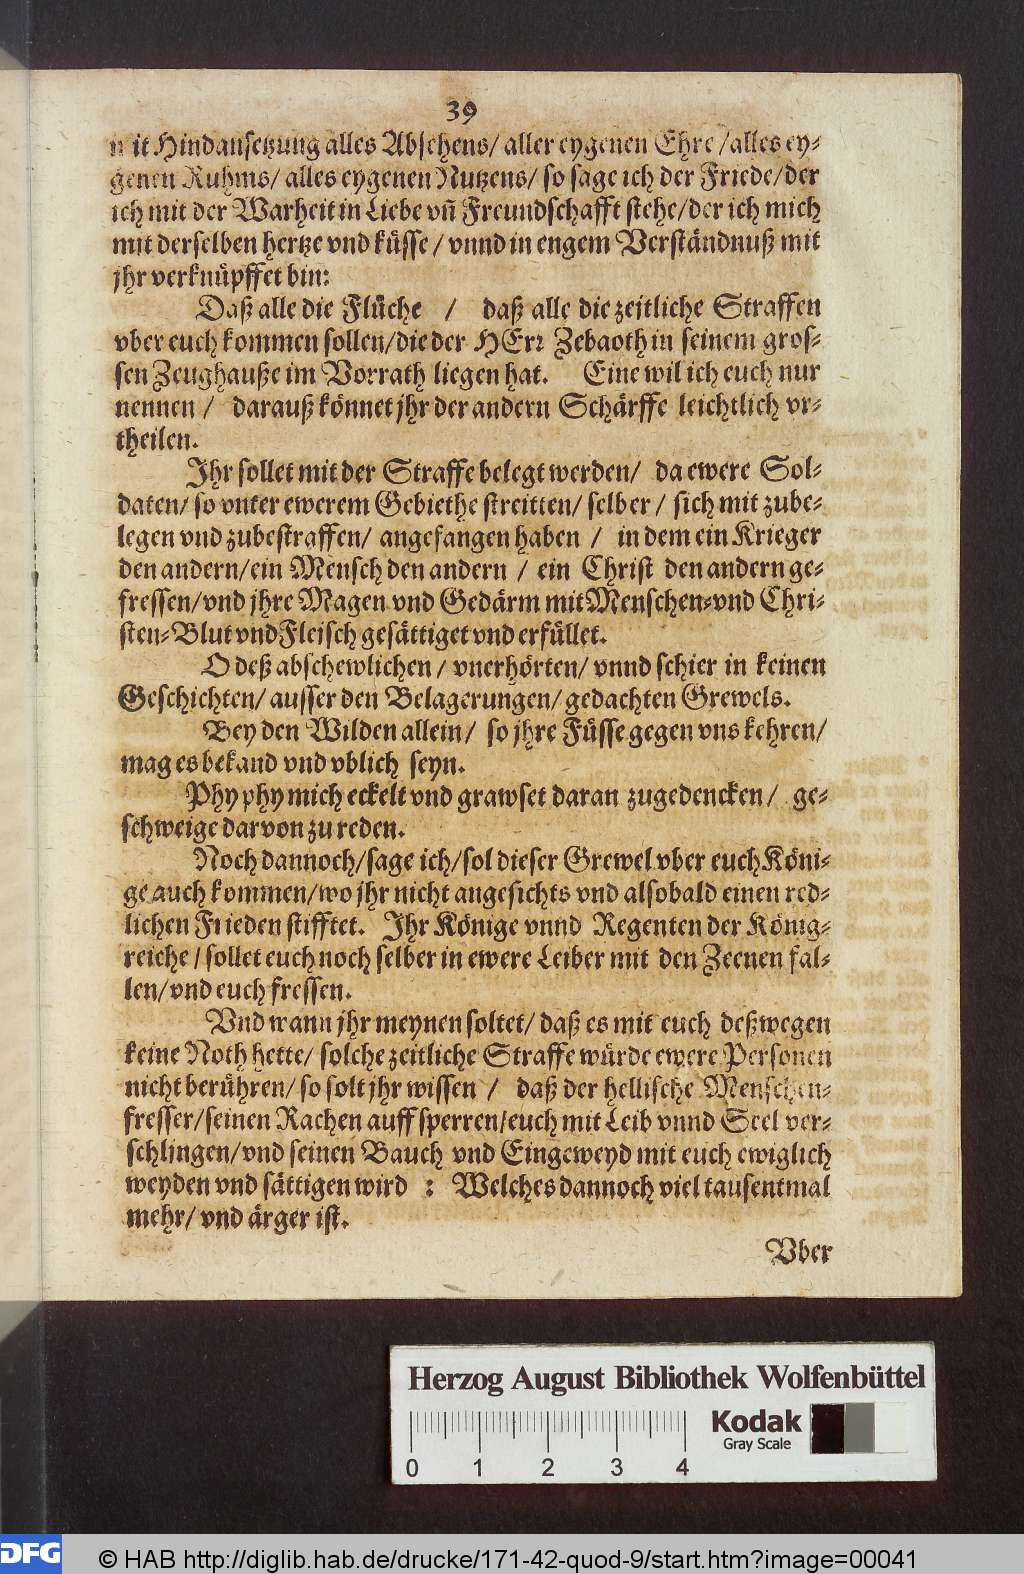 39
mit Hindansetzung alles Absehens/ aller eygenen Ehre/ alles ey-
genen Ruhms/ alles eygenen Nutzens/ so sage ich der Friede/ der
ich mit der Warheit in Liebe vñ Freundschafft stehe/ der ich mich
mit derselben hertze vnd küsse/ vnnd in engem Verständnuß mit
jhr verknüpffet bin:
Daß alle die Flüche / daß alle die zeitliche Straffen
vber euch kommen sollen/ die der HErr Zebaoth in seinem gros-
sen Zeughauße im Vorrath liegen hat. Eine wil ich euch nur
nennen / darauß könnet jhr der andern Schärffe leichtlich vr-
theilen.
Ihr sollet mit der Straffe belegt werden/ da ewere Sol-
daten/ so vnter ewerem Gebiethe streitten/ selber / sich mit zube-
legen vnd zubestraffen/ angefangen haben / in dem ein Krieger
den andern/ ein Mensch den andern / ein Christ den andern ge-
fressen/ vnd jhre Magen vnd Gedärm mit Menschen-vnd Chri-
sten-Blut vnd Fleisch gesättiget vnd erfüllet.
O deß abschewlichen/ vnerhörten/ vnnd schier in keinen
Geschichten/ ausser den Belagerungen/ gedachten Grewels.
Bey den Wilden allein/ so jhre Füsse gegen vns kehren/
mag es bekand vnd vblich seyn.
Phy phy mich eckelt vnd grawset daran zugedencken/ ge-
schweige darvon zu reden.
Noch dannoch/ sage ich/ sol dieser Grewel vber euch Köni-
ge auch kommen/ wo jhr nicht angesichts vnd alsobald einen red-
lichen Frieden stifftet. Ihr Könige vnnd Regenten der König-
reiche / sollet euch noch selber in ewere Leiber mit den Zeenen fal-
len/ vnd euch fressen.
Vnd wann jhr meynen soltet/ daß es mit euch deßwegen
keine Noth hette/ solche zeitliche Straffe würde ewere Personen
nicht berühren/ so solt jhr wissen / daß der hellische Menschen-
fresser/ seinen Rachen auff sperren/ euch mit Leib vnnd Seel ver-
schlingen/ vnd seinen Bauch vnd Eingeweyd mit euch ewiglich
weyden vnd sättigen wird : Welches dannoch viel tausentmal
mehr/ vnd ärger ist.
Vber
Herzog August Bibliothek Wolfenbüttel
Kodak
Gray Scale
0 1 2 3 4
DFG © HAB http://diglib.hab.de/drucke/171-42-quod-9/start.htm?image=00041